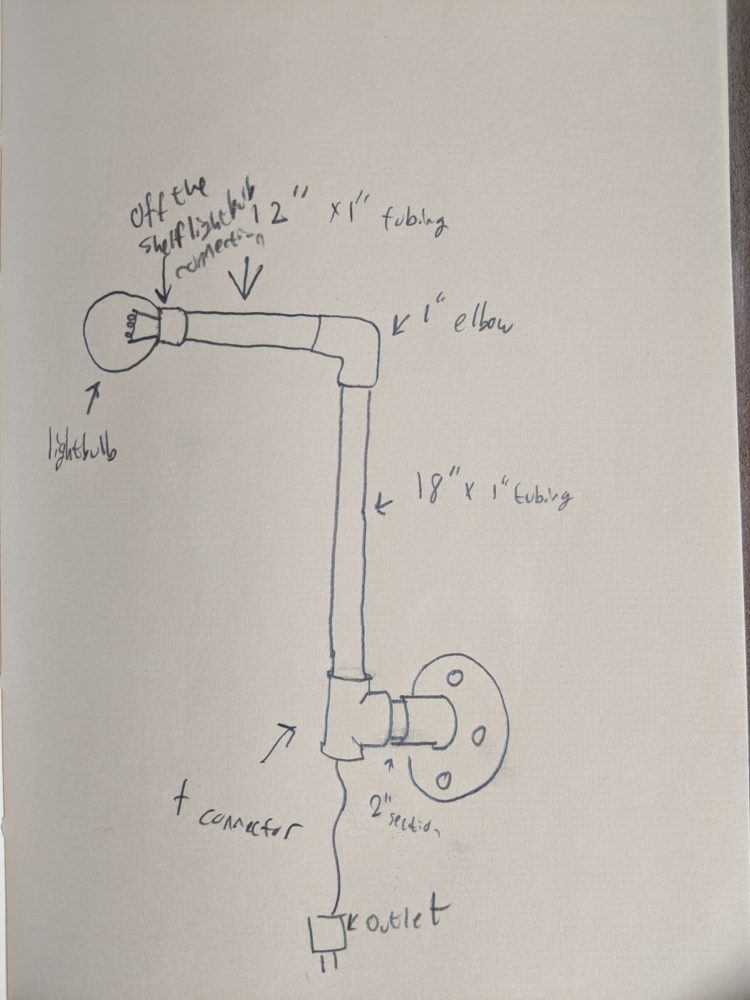 Off the
shelf lightbulb
connection
12" x1" tubing
1" elbow
lightbulb
18" x 1" tubing
t connector
2" section
outlet